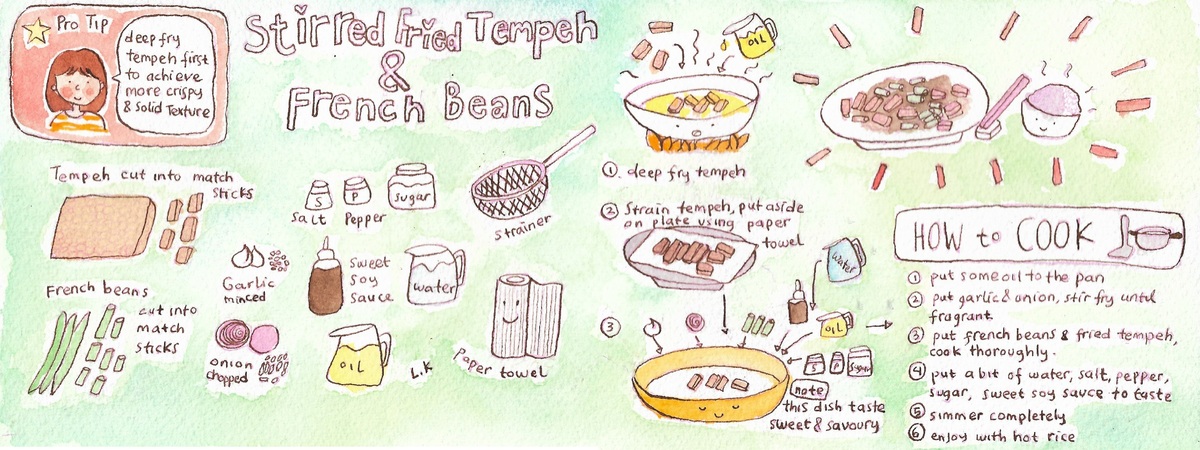 Pro Tip
deep fry
tempeh first
to achieve
more crispy
& solid Texture
Stirred Fried Tempeh
&
French Beans
Tempeh cut into match
sticks
S
P
sugar
Salt
Pepper
strainer
Garlic
minced
Sweet
Soy
Sauce
water
French beans
cut into
match
sticks
onion
chopped
OIL
L.K
Paper towel
OIL
1. deep fry tempeh
2 Strain tempeh, put aside
on plate using paper
towel
water
3
OIL
S
P
Sugar
note
this dish taste
sweet & savoury
HOW to COOK
1 put some oil to the pan
2 put garlic & onion, stir fry until
fragrant.
3 put french beans & fried tempeh,
cook thoroughly.
4 put a bit of water, salt, pepper,
sugar, sweet soy sauce to taste
5 simmer completely
6 enjoy with hot rice